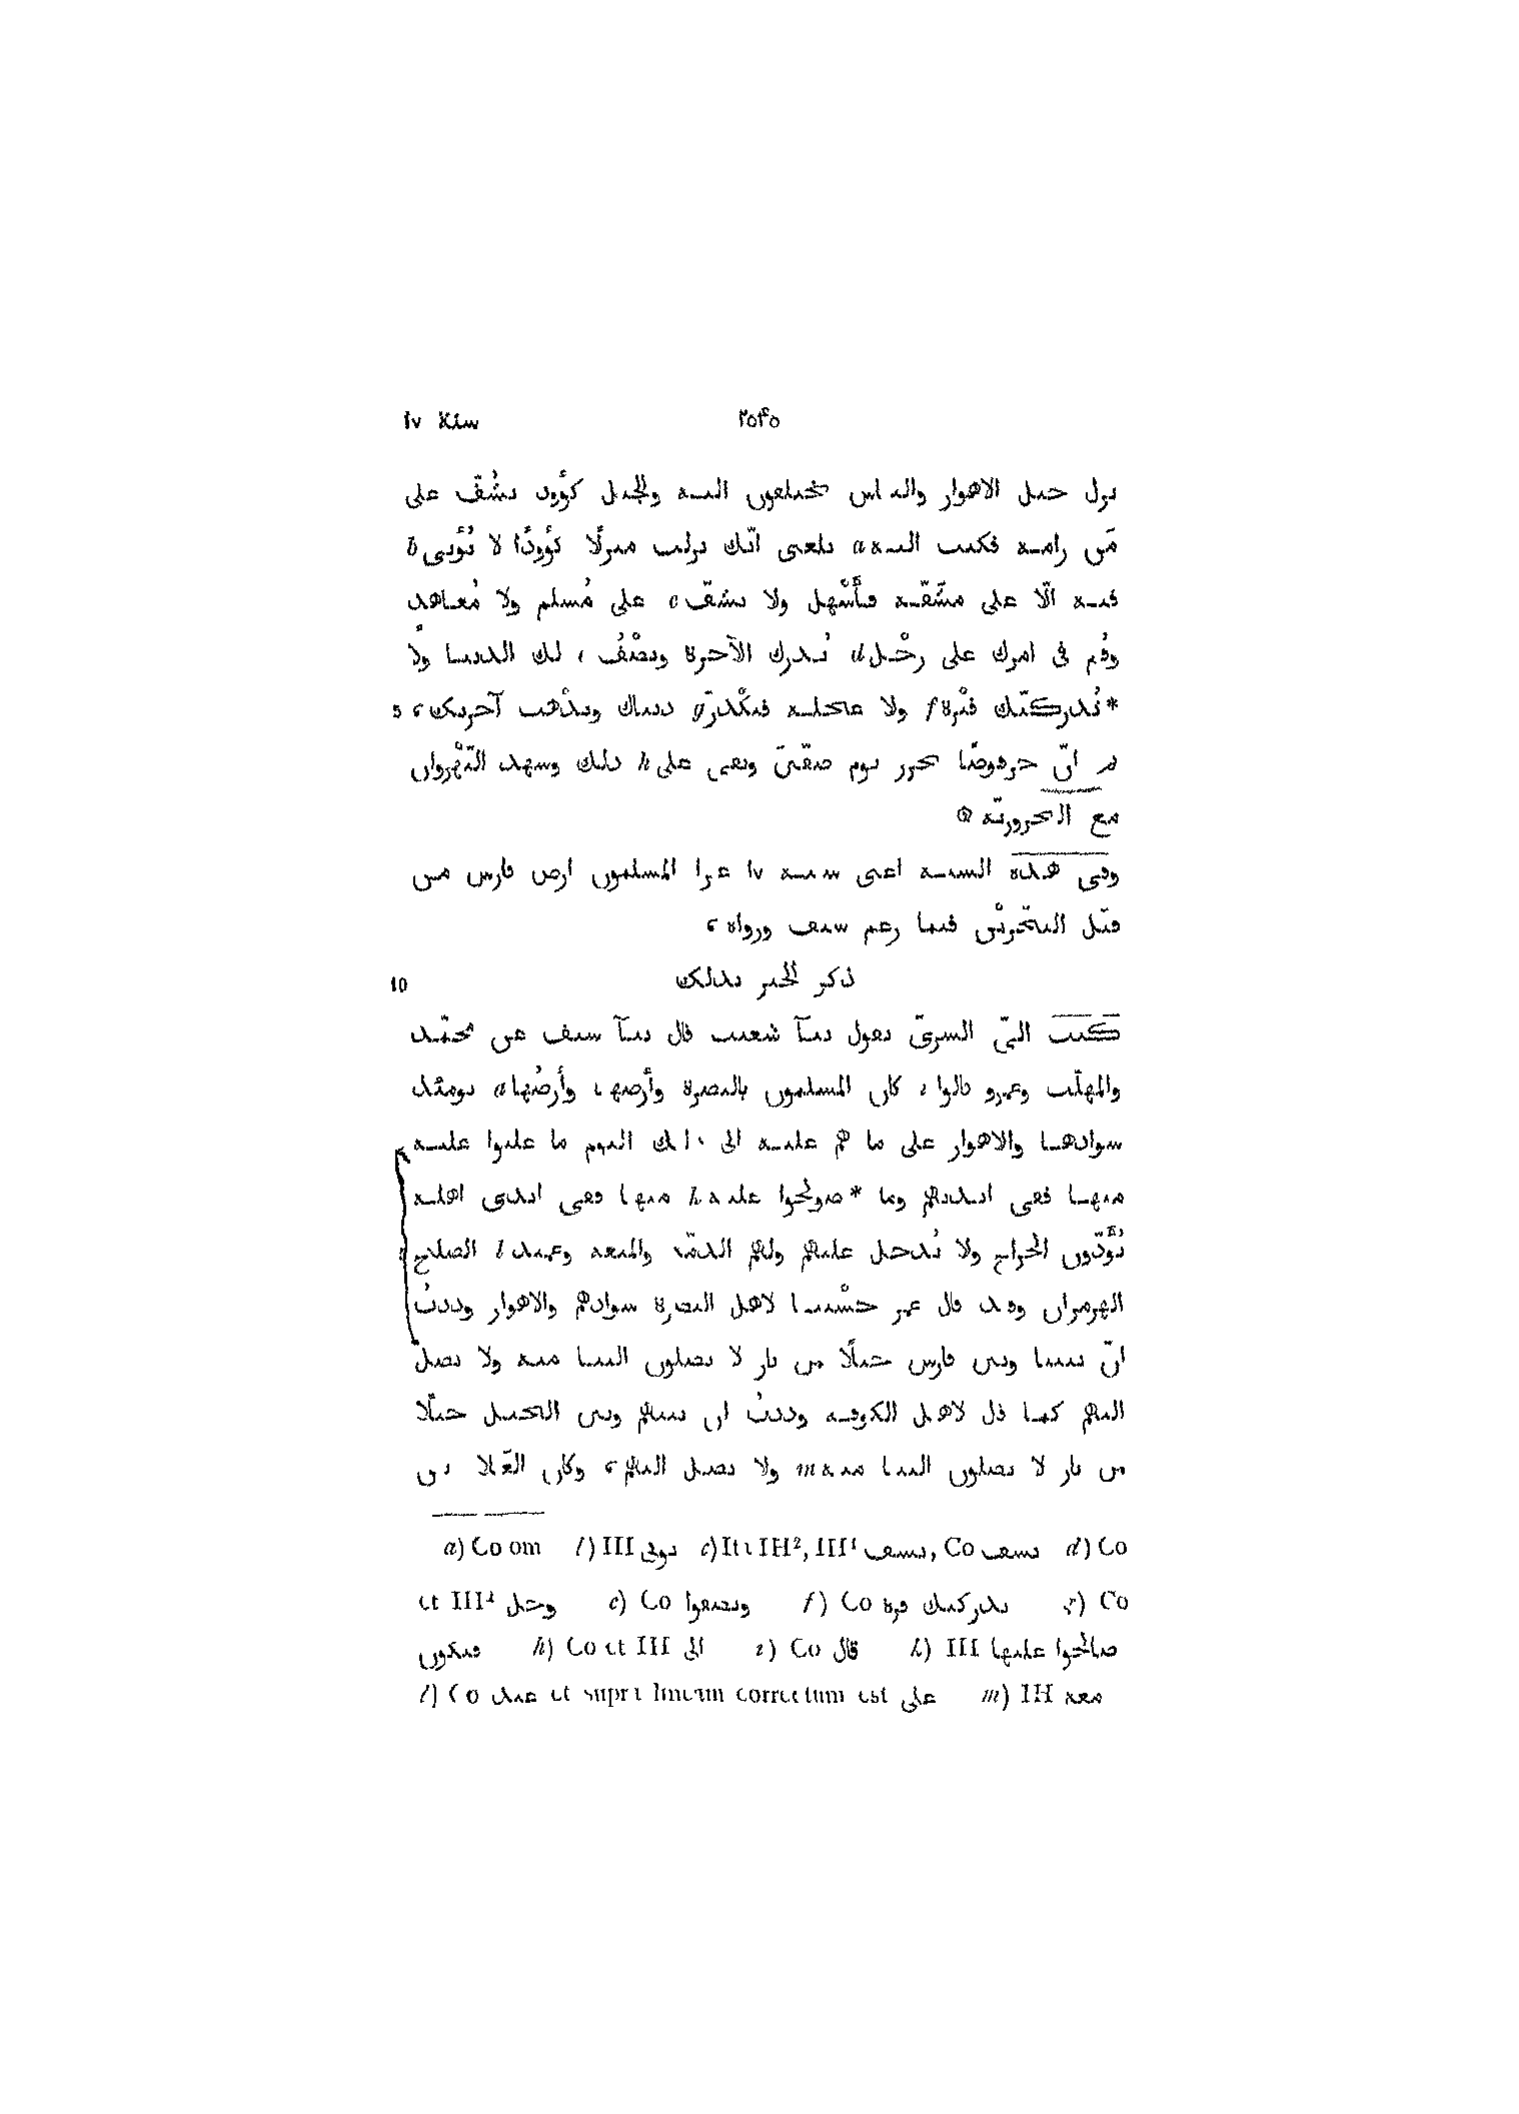 سنة ١٧ ٢٥٤٥
نزل جبل الاهواز والناس يختلفون اليه والجبل كؤود يشُقّ على
مَن رامه فكتب اليه a بلغنى انّك نزلت منزلًا كؤودًا لا تُؤْتى b
فيه الّا على مشَقّة فأَسْهِل ولا تشقّ c على مُسلم ولا مُعاهد
وقُم فى امرك على رجْل d تُدرك الآخرة وتصْفُ e لك الدنيا ولا
*تُدركنّك فَتْرة f ولا عجلة فتكْدرَ g دنياك وتذْهب آخرتك، 5
ثم انّ حرقوصًا تحرّر يوم صفّين وبقى على h ذلك وشهد النَّهْروان
مع الحروريّة ۞
وفى هذه السنة اعنى سنة ١٧ غزا المسلمون ارض فارس من
قبَل البحْرَيْن فيما زعم سيف ورواه،
ذكر الخبر بذلك 10
كتب الىّ السرىّ يقول نـا شعيب قال نـا سيف عن محمّد
والمهلّب وعمرو قالوا i كان المسلمون بالبصرة وأرضها وأرضُها a يومئذ
سوادها والاهواز على ما هم عليه الى ذلك اليوم ما غلبوا عليه
منها ففى ايديهم وما *صولحوا عليه k منها ففى ايدى اهله
يُؤَدّون الخراج ولا يُدخل عليهم ولهم الذمّة والمنعة وعميد l الصلح
الهرمزان وقد قال عمر حسْبنا لاهل البصرة سوادهم والاهواز وددتُ
انّ بيننا وبين فارس جبلًا من نار لا يصلون الينا منه ولا نصل
اليهم كما قال لاهل الكوفة وددتُ ان بينهم وبين الجبل جبلًا
من نار لا يصلون الينا منه m ولا نصل اليهم، وكان العَلاء بن
a) Co om b) III توتى c) Ita IH², III¹ تسعف, Co تسعف d) Co
et III² وحل e) Co وتصفوا f) Co تدركنك فترة g) Co
فتكون h) Co et III الى i) Co قال k) III صالحوا عليها
l) Co عند et supra lineam correctum est على m) IH معه